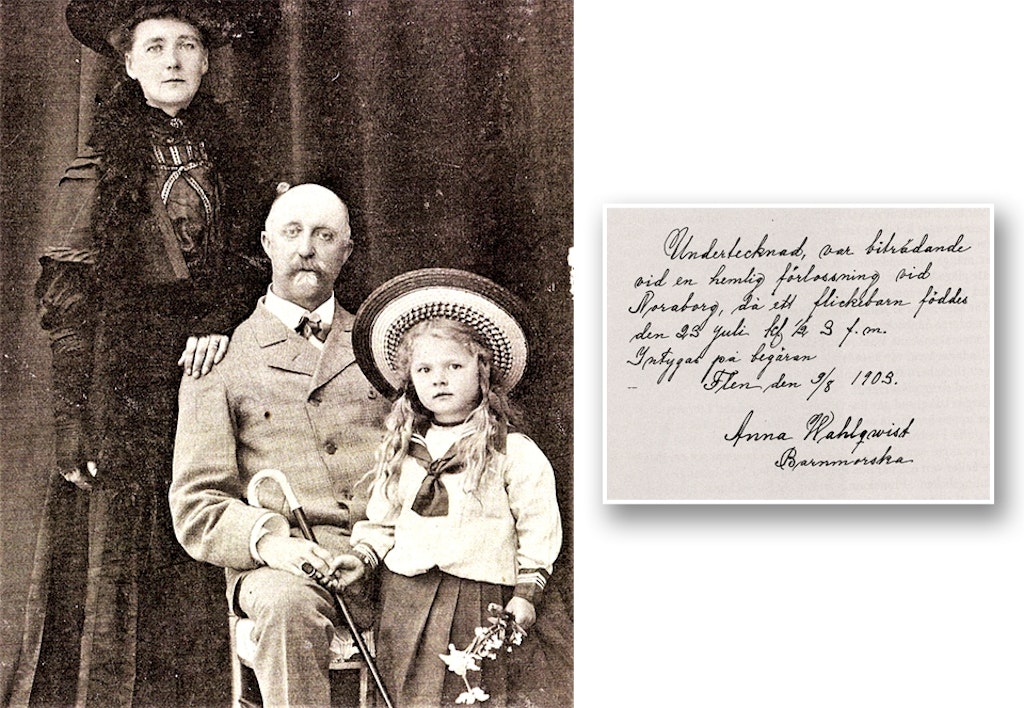 Undertecknad, var biträdande
vid en hemlig förlossning vid
Noraborg, då ett flickebarn föddes
den 23 juli kl ½ 3 f.m.
Intygas på begäran
Flen den 9/8 1903.
Anna Wahlqwist
Barnmorska